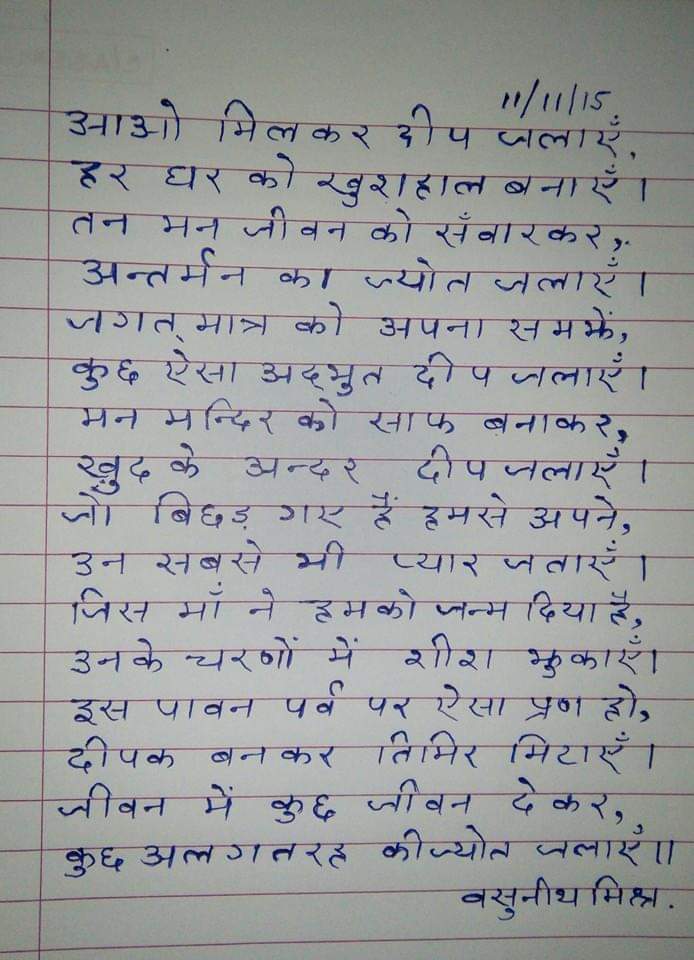 11/11/15
आओ मिलकर दीप जलाएँ,
हर घर को खुशहाल बनाएँ।
तन मन जीवन को सँवारकर,
अन्तर्मन का ज्योत जलाएँ।
जगत् मात्र को अपना समझें,
कुछ ऐसा अद्भुत दीप जलाएँ।
मन मन्दिर को साफ बनाकर,
ख़ुद के अन्दर दीप जलाएँ।
जो बिछड़ गए हैं हमसे अपने,
उन सबसे भी प्यार जताएँ।
जिस माँ ने हमको जन्म दिया है,
उनके चरणों में शीश झुकाएँ।
इस पावन पर्व पर ऐसा प्रण हो,
दीपक बनकर तिमिर मिटाएँ।
जीवन में कुछ जीवन देकर,
कुछ अलग तरह की ज्योत जलाएँ॥
वसुनीथ मिश्र.